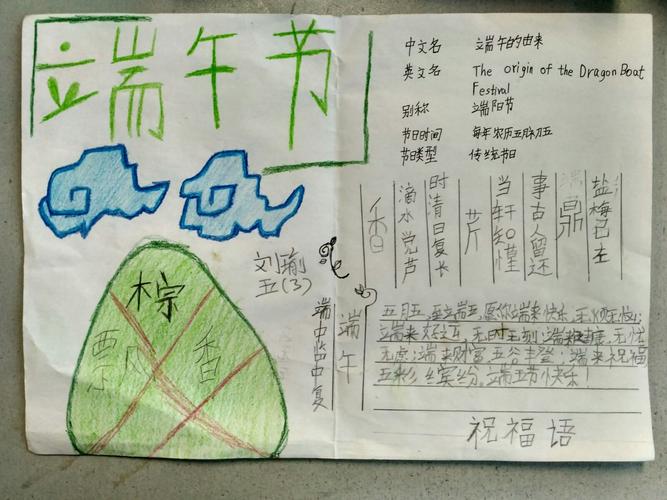 端午节
中文名 端午的由来
英文名 The origin of the Dragon Boat
Festival
别称 端阳节
节日时间 每年农历五月初五
节日类型 传统节日
棕
飘香
刘瑜
五(3)
盐梅已左
鼎
事古人留还
当轩知懂
芹
时清日复长
滴水党芦
香
端午
端中临中复
五月五,端五,愿你端来快乐,无烦无忧;
端来好运,无时无刻;端来健康,无忧
无虑;端来财富,五谷丰登;端来祝福
五彩缤纷。端五节快乐!
祝福语